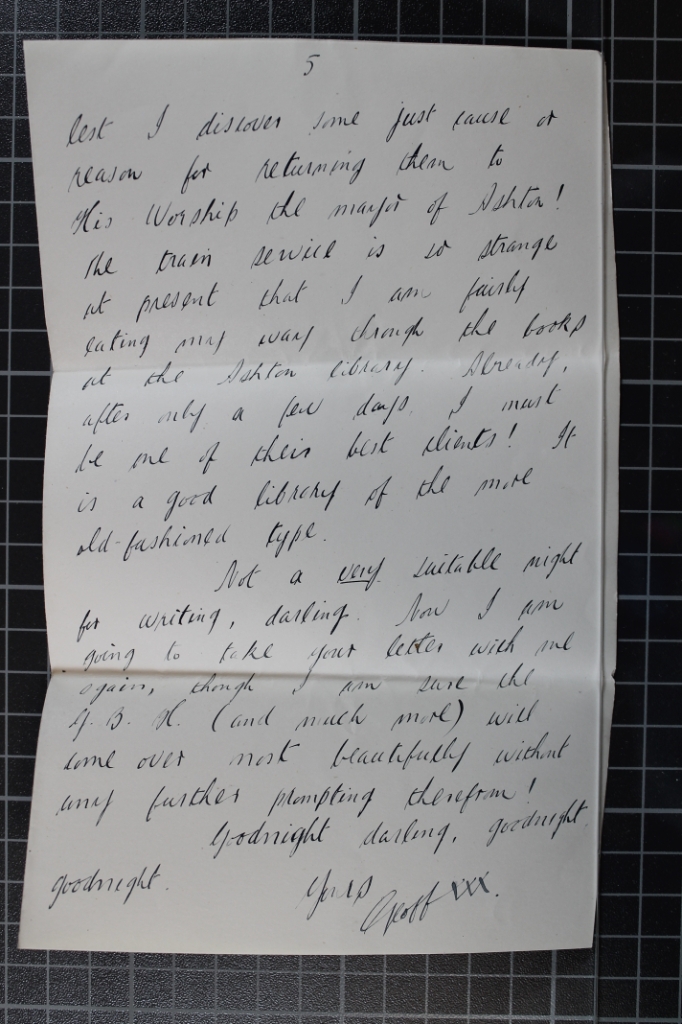 5
lest I discover some just cause or
reason for returning them to
His Worship the mayor of Ashton!
The train service is so strange
at present that I am fairly
eating my way through the books
at the Ashton library. Already,
after only a few days, I must
be one of their best clients! It
is a good library of the more
old-fashioned type.
Not a very suitable night
for writing, darling. Now I am
going to take your letter with me
again, though I am sure the
G. B. H. (and much more) will
come over most beautifully without
any further prompting therefrom!
Goodnight darling, goodnight,
goodnight.
Yours
Geoff xxx.